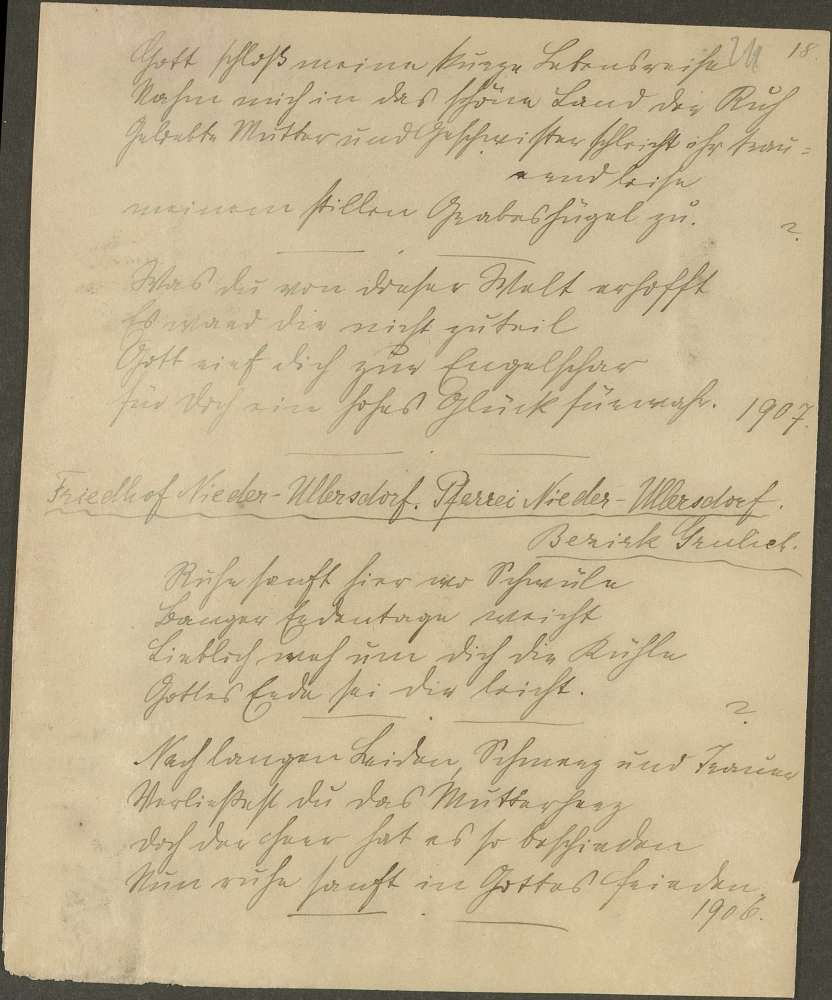 18.
Gott schloß meine kurze Lebensreise
Nahm mich in das schöne Land der Ruh
Geliebte Mutter und Geschwister schleicht ihr trau=
ernd leise
meinem stillen Grabeshügel zu.
?.
Was du von dieser Welt erhofft
Es ward dir nicht zuteil
Gott rief dich zur Engelschar
für dich ein hohes Glück fürwahr. 1907.
Friedhof Nieder-Ullersdorf. Pfarrei Nieder-Ullersdorf.
Bezirk Grulich.
Ruhe sanft hier wo Schwüle
Banger Erdentage weicht
Lieblich weh um dich die Kühle
Gottes Erde sei dir leicht.
?
Nach langen Leiden, Schmerz und Trauer
Verließest du das Mutterherz
doch der Herr hat es so beschieden
Nun ruhe sanft in Gottes Frieden.
1906.